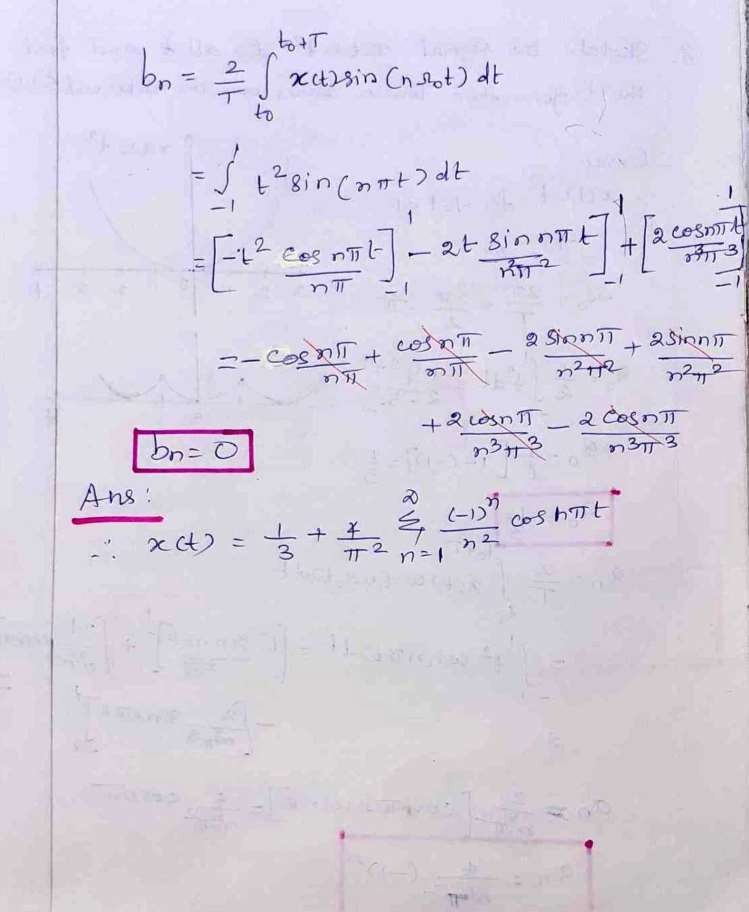 bn = 2/T ∫_{t0}^{t0+T} x(t) sin (nΩ0t) dt
= ∫_{-1}^{1} t² sin (nπt) dt
= [-t² cos nπt / nπ]_{-1}^{1} - 2t sin nπt / n²π²]_{-1}^{1} + [2 cos nπt / n³π³]_{-1}^{1}
= - cos nπ / nπ + cos nπ / nπ - 2 sin nπ / n²π² + 2 sin nπ / n²π²
+ 2 cos nπ / n³π³ - 2 cos nπ / n³π³
bn = 0
Ans :
∴ x(t) = 1/3 + 4/π² Σ_{n=1}^{∞} (-1)ⁿ / n² cos nπt